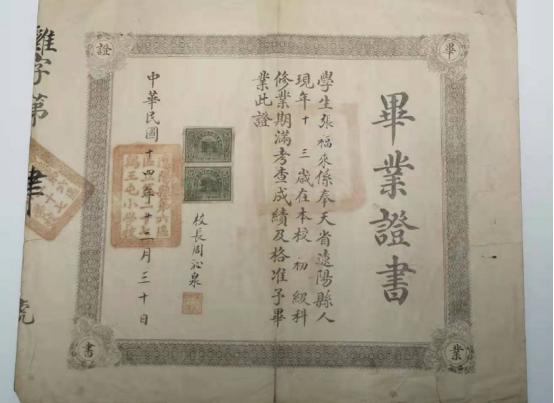 畢業證書
畢
業
證
書
學生張福來係奉天省遼陽縣人
現年十三歲在本校初級科
修業期滿考查成績及格准予畢
業此證
校長周沁泉
中華民國十四年十二月三十日
字第
號